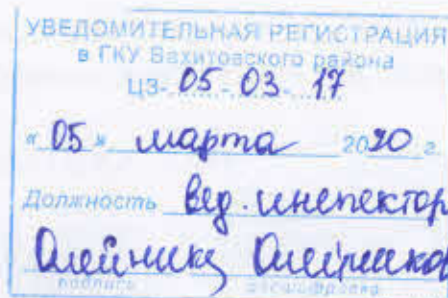 УВЕДОМИТЕЛЬНАЯ РЕГИСТРАЦИЯ
в ГКУ Вахитовского района
ЦЗ- 05 - 03 - 17
« 05 » марта 2020 г.
Должность вед. инспектор
подпись расшифровка